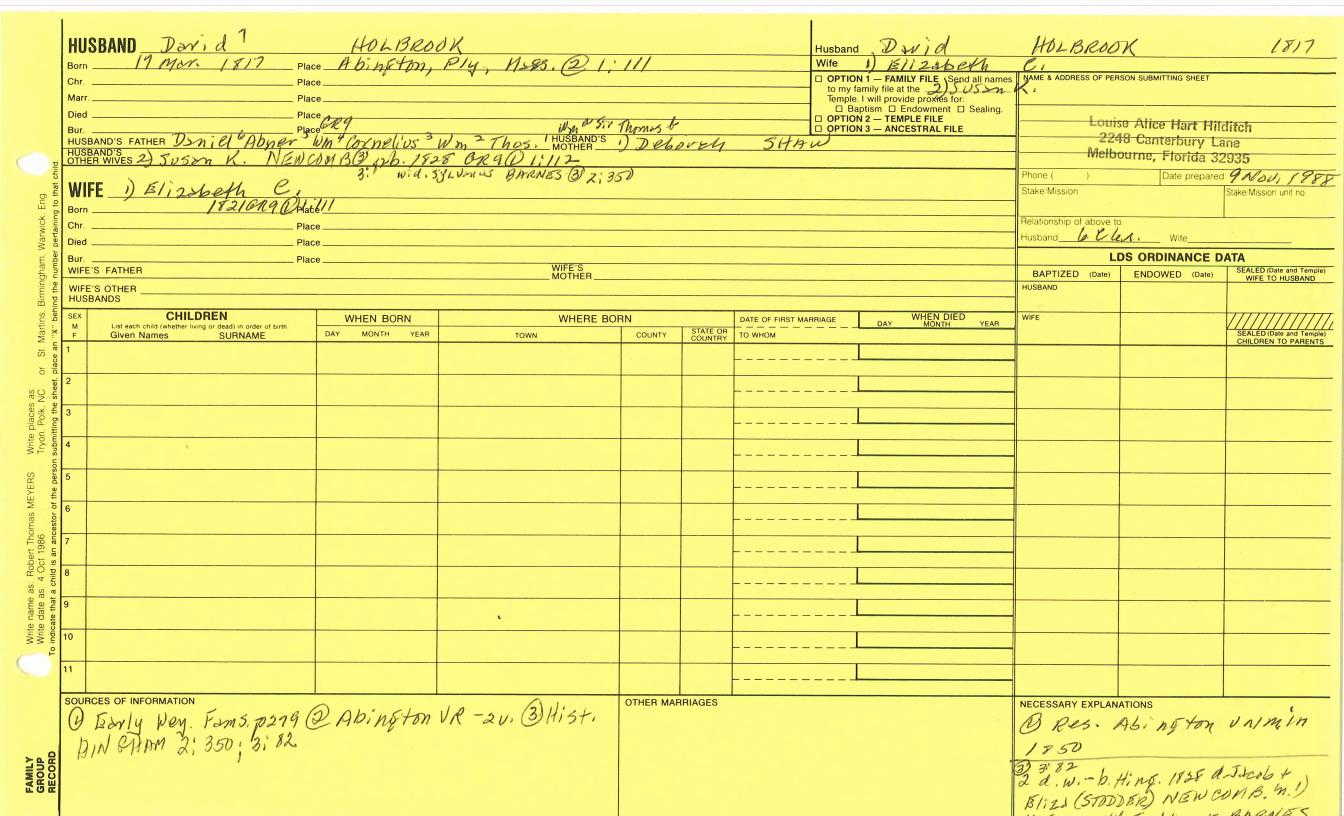 HUSBAND David 7 HOLBROOK
Born 19 Mar. 1817 Place Abington, Ply, Mass. ② 1:111
Chr. Place
Marr. Place
Died Place
Bur. Place GR9
HUSBAND'S FATHER Daniel 6 Abner 5 Wm 4 Cornelius 3 Wm 2 Thos. 1 HUSBAND'S MOTHER 1) Deborah SHAW
HUSBAND'S OTHER WIVES 2) Susan K. NEWCOMB ③ pvb. 1828 GR9 ① 1:112
3: wid. Sylvanus BARNES ③ 2:350
WIFE 1) Elizabeth C.
Born 1821 GR9 Place 1:111
Chr. Place
Died Place
Bur. Place
WIFE'S FATHER WIFE'S MOTHER
WIFE'S OTHER HUSBANDS
Husband David HOLBROOK 1817
Wife 1) Elizabeth C.
2) Susan K.
☐ OPTION 1 — FAMILY FILE Send all names
to my family file at the
Temple. I will provide proxies for:
☐ Baptism ☐ Endowment ☐ Sealing.
☐ OPTION 2 — TEMPLE FILE
☐ OPTION 3 — ANCESTRAL FILE
NAME & ADDRESS OF PERSON SUBMITTING SHEET
Louise Alice Hart Hilditch
2248 Canterbury Lane
Melbourne, Florida 32935
Phone ( ) Date prepared 9 Nov, 1988
Stake/Mission Stake/Mission unit no
Relationship of above to
Husband Wife
LDS ORDINANCE DATA
BAPTIZED (Date) ENDOWED (Date) SEALED (Date and Temple) WIFE TO HUSBAND
HUSBAND
WIFE
SEALED (Date and Temple) CHILDREN TO PARENTS
SEX M F
CHILDREN
List each child (whether living or dead) in order of birth
Given Names SURNAME
WHEN BORN
DAY MONTH YEAR
WHERE BORN
TOWN COUNTY STATE OR COUNTRY
DATE OF FIRST MARRIAGE
TO WHOM
WHEN DIED
DAY MONTH YEAR
1
2
3
4
5
6
7
8
9
10
11
SOURCES OF INFORMATION
① Early Wey. Fams. p279 ② Abington VR - 2v. ③ Hist.
HINGHAM 2:350; 3:82
OTHER MARRIAGES
NECESSARY EXPLANATIONS
Res. Abington
1850
③ 3:82
2 d. w. - b. Hing. 1828 d. Jacob +
Eliza (STODDER) NEWCOMB. m. 1)
BARNES
Write name as: Robert Thomas MEYERS Write places as: Tryon, Polk, NC or St. Martins, Birmingham, Warwick, Eng.
Write date as: 4 Oct 1986
To indicate that a child is an ancestor of the person submitting the sheet, place an "X" behind the number pertaining to that child.
FAMILY GROUP RECORD